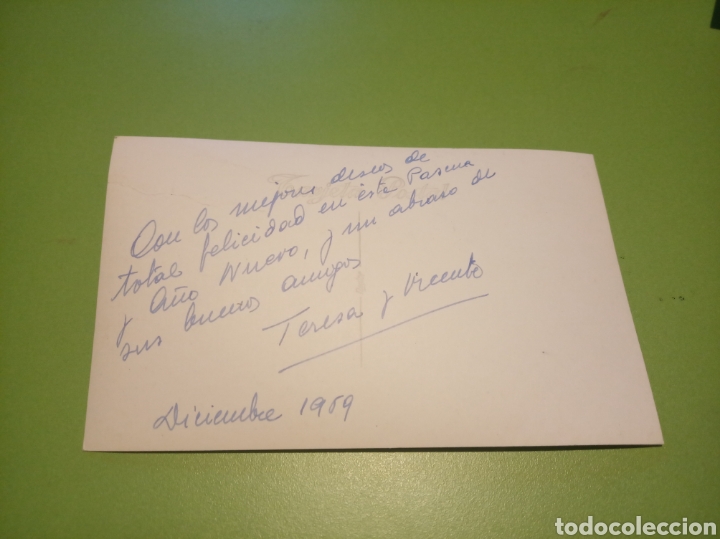 Con los mejores deseos de
total felicidad en esta Pascua
y Año Nuevo, y un abrazo de
sus buenos amigos
Teresa y Vicente
Diciembre 1969
todocoleccion